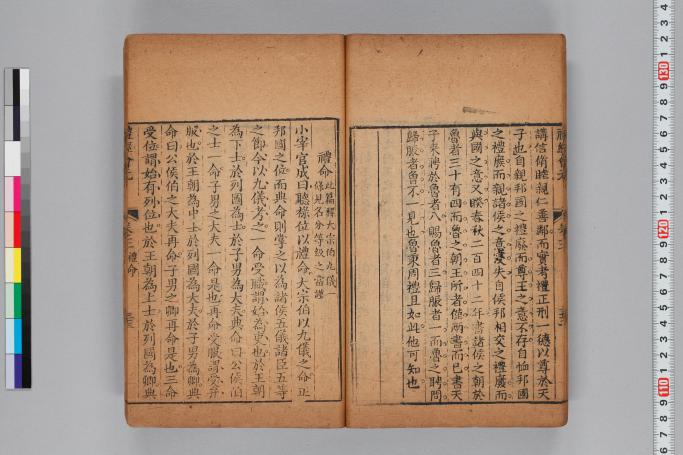 講信脩睦親仁善鄰而實考禮正刑一德以尊於天
子也自親邦國之禮廢而尊王之意不存自恤邦國
之禮廢而親諸侯之意失自侯邦相交之禮廢而
與國之意又睽春秋二百四十二年書諸侯之朝於
魯者三十有四而魯之朝王所者僅兩書而已書天
子來聘於魯者八賜魯者三歸脤者一而魯之聘問
歸脤者魯不一見也魯秉周禮且如此他可知也
禮命
此篇釋大宗伯九儀一
條見名分等級之當謹
小宰官成曰聽祿位以禮命大宗伯以九儀之命正
邦國之位而典命則掌之以為諸侯五儀諸臣五等
之命今以九儀考之一命受職謂始為吏也於王朝
為下士於列國為士於子男為大夫典命曰公侯伯
之士一命子男之大夫一命是也再命受服謂受弁
服也於王朝為中士於列國為大夫於子男為卿典
命曰公侯伯之大夫再命子男之卿再命是也三命
受位謂始有列位也於王朝為上士於列國為卿典
卷三
禮命